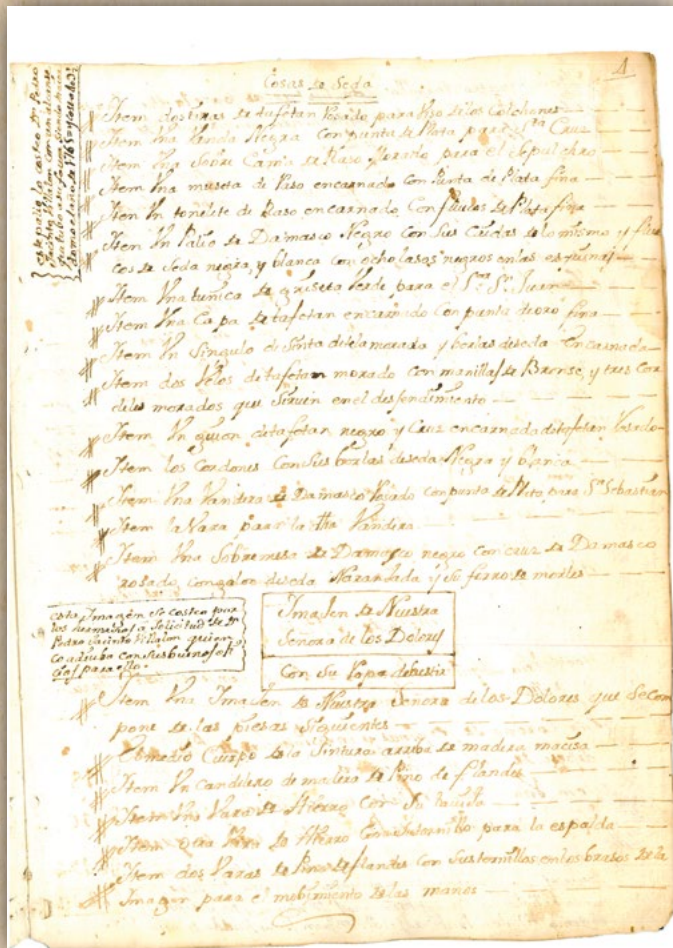 4
Cosas de Seda
este palio lo costeo Dn. Pedro
Jacinto Villalon con una
Item dos tiras de tafetan Rosado para Uso de los Colchones
Item Una Vanda Negra con punta de Plata para Sta. Cruz
Item Una Sobre Cama de Raso Morado para el Sepulchro
Item Una museta de Raso encarnado con Punta de Plata fina
Item Un tonelete de Raso encarnado, Con flueles de Plata fina
Item Un Palio de Damasco Negro con Sus Caidas de lo mismo y flue
cos de Seda negra, y blanca con ocho lasos negros en las esquinas
Item Una tunica de griseta Verde para el Sr. Sn. Juan
Item Una Capa de tafetan encarnado Con punta de oro fina
Item Un Singulo de Sinta de tela morada y borlas de seda Encarnada
Item dos Velos de tafetan morado con manillas de Bronse, y tres Cor
deles morados que Sirven en el desendimiento
Item Un guion de tafetan negro y Cruz encarnada de tafetan Rosado
Item los Cordones Con Sus borlas de seda Negra y blanca
Item Una Vandera de Damasco Rosado con punta de para Sn. Sebastian
Item la Vara para la dha Vandera
Item Una Sobremesa de Damasco negro con cruz de Damasco
rosado, con galon de seda Naranjada y su forro de
esta Imagen se costeo por
los a Solicitud de Dn.
Pedro Jacinto Villalon quien
coadiuba con sus
para ello.
Imajen de Nuestra
Señora de los Dolores
Con Su Ropa de bestir
Item Una Imajen de Nuestra Señora de los Dolores que Se com
pone de las piesas Siguientes
El medio Cuerpo de la Sintura arriba de madera masisa
Item Un candelero de madera de Pino de flandes
Item Una Vara de Hierro con Su
Item otra Vara de Hierro Con tornillo para la espalda
Item dos Varas de Pino de flandes con Sus tornillos en los brasos de la
Imagen para el mobimiento de las manos